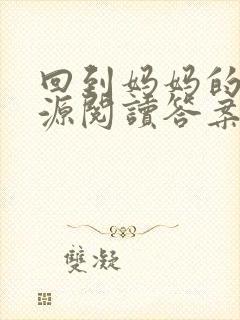 回到妈妈的
源閱讀答案
雙凝